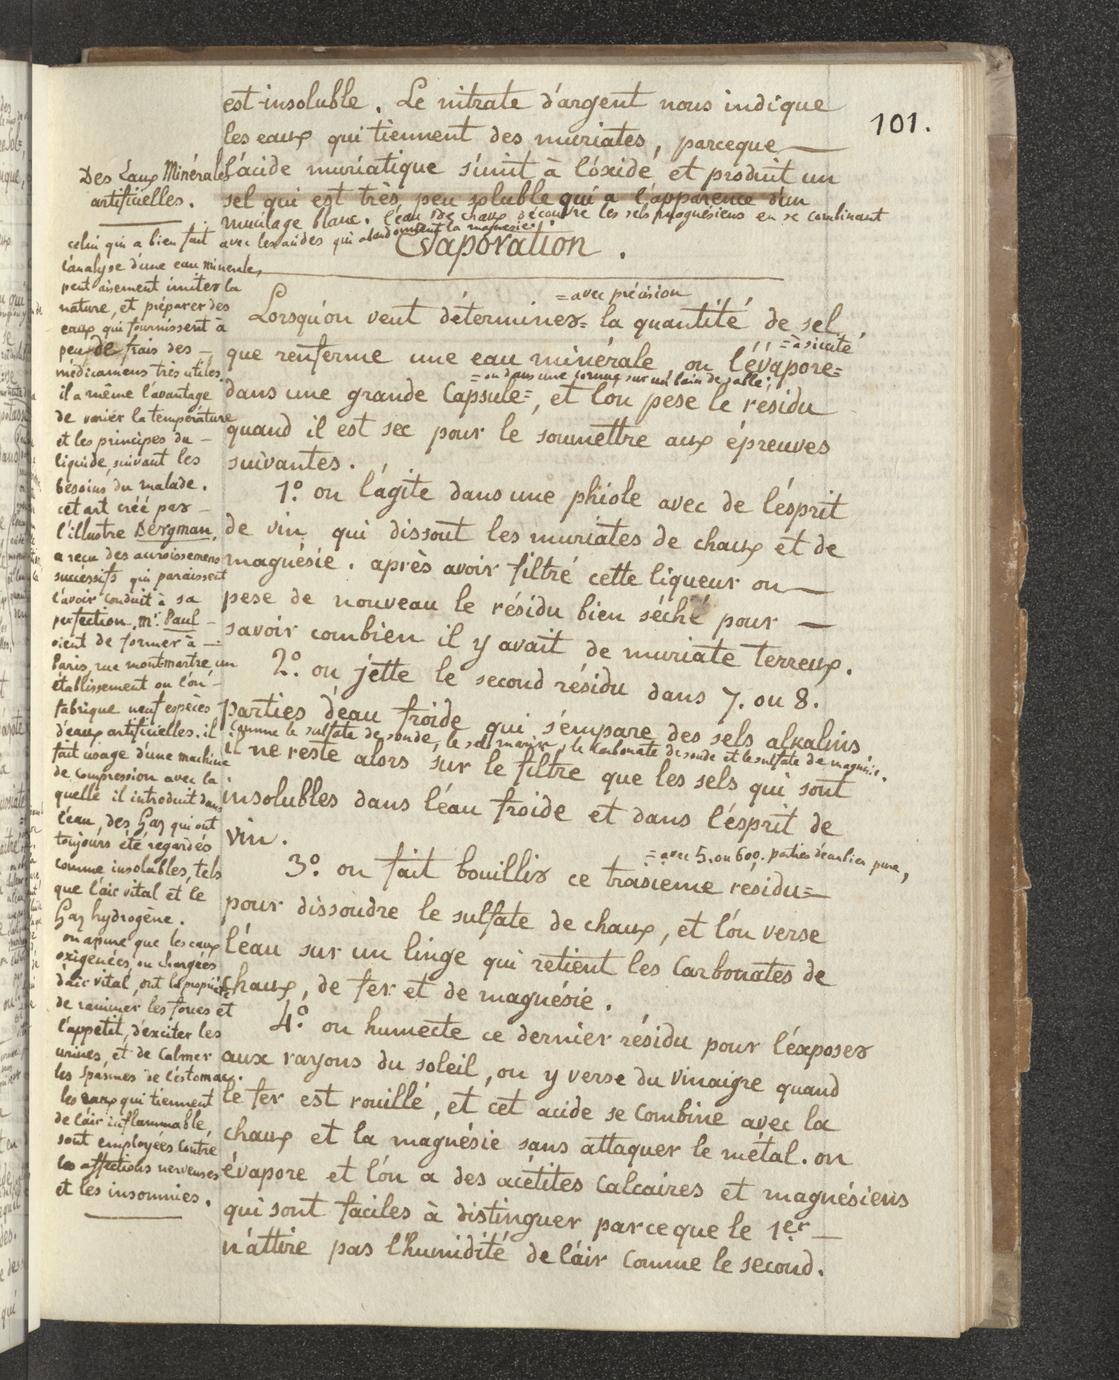 101.
est insoluble. Le nitrate d'argent nous indique
les eaux qui tiennent des muriates, parceque —
l'acide muriatique s'unit à l'oxide, et produit un
sel qui est très peu soluble qui a l'apparence d'un
mucilage blanc. l'eau de chaux découvre les sels magnésiens en se combinant
avec les acides qui abandonnent la magnésie.
Evaporation.
= avec précision
Lorsqu'on veut déterminer = la quantité de sel,
que renferme une eau minérale on l'évapore =
= à siccité
= ou dans une cornue sur un bain de sable;
dans une grande Capsule =, et l'on pese le résidu
quand il est sec pour le soumettre aux épreuves
suivantes.
1.° on l'agite dans une phiole avec de l'esprit
de vin, qui dissout les muriates de chaux et de
magnésie. après avoir filtré cette liqueur on —
pese de nouveau le résidu bien séché pour —
savoir combien il y avait de muriate terreux.
2.° on jette le second résidu dans 7. ou 8.
parties d'eau froide qui s'empare des sels alkalins
comme le sulfate de soude, le sel marin, le carbonate de soude et le sulfate de magnésie.
il ne reste alors sur le filtre que les sels qui sont
insolubles dans l'eau froide et dans l'esprit de
vin.
= avec 5. ou 600. parties d'eau bien pure,
3.° on fait bouillir ce troisieme résidu =
pour dissoudre le sulfate de chaux, et l'on verse
l'eau sur un linge qui retient les Carbonates de
chaux, de fer et de magnésie.
4.° on humecte ce dernier résidu pour l'éxposer
aux rayons du soleil, on y verse du vinaigre quand
le fer est rouillé, et cet acide se combine avec la
chaux et la magnésie sans attaquer le métal. on
évapore et l'on a des acétites Calcaires et magnésiens
qui sont faciles à distinguer parceque le 1er —
n'attire pas l'humidité de l'air comme le second.
Des Eaux Minérales
artificielles.
celui qui a bien fait
l'analyse d'une eau minerale,
peut aisement imiter la
nature, et préparer des
eaux qui fournissent à
peu de frais des —
médicamens très utiles.
il a même l'avantage
de varier la température
et les principes du —
liquide, suivant les
besoins du malade.
cet art créé par —
l'illustre Bergman,
a reçu des accroissemens
successifs qui paraissent
l'avoir conduit à sa
perfection. mr. Paul —
vient de former à —
Paris, rue montmartre, un
établissement ou l'on —
fabrique neuf espèces
d'eaux artificielles. il
fait usage d'une machine
de compression avec la
quelle il introduit dans
l'eau, des Gaz qui ont
toujours été regardés
comme insolubles, tels
que l'air vital et le
Gaz hydrogène.
on assure que les eaux
oxigenées, ou chargées
d'air vital, ont la propriété
de ranimer les forces et
l'appétit, d'exciter les
urines, et de calmer
les spasmes de l'estomac.
les eaux qui tiennent
de l'air inflammable,
sont employées contre
les affections nerveuses
et les insomnies.